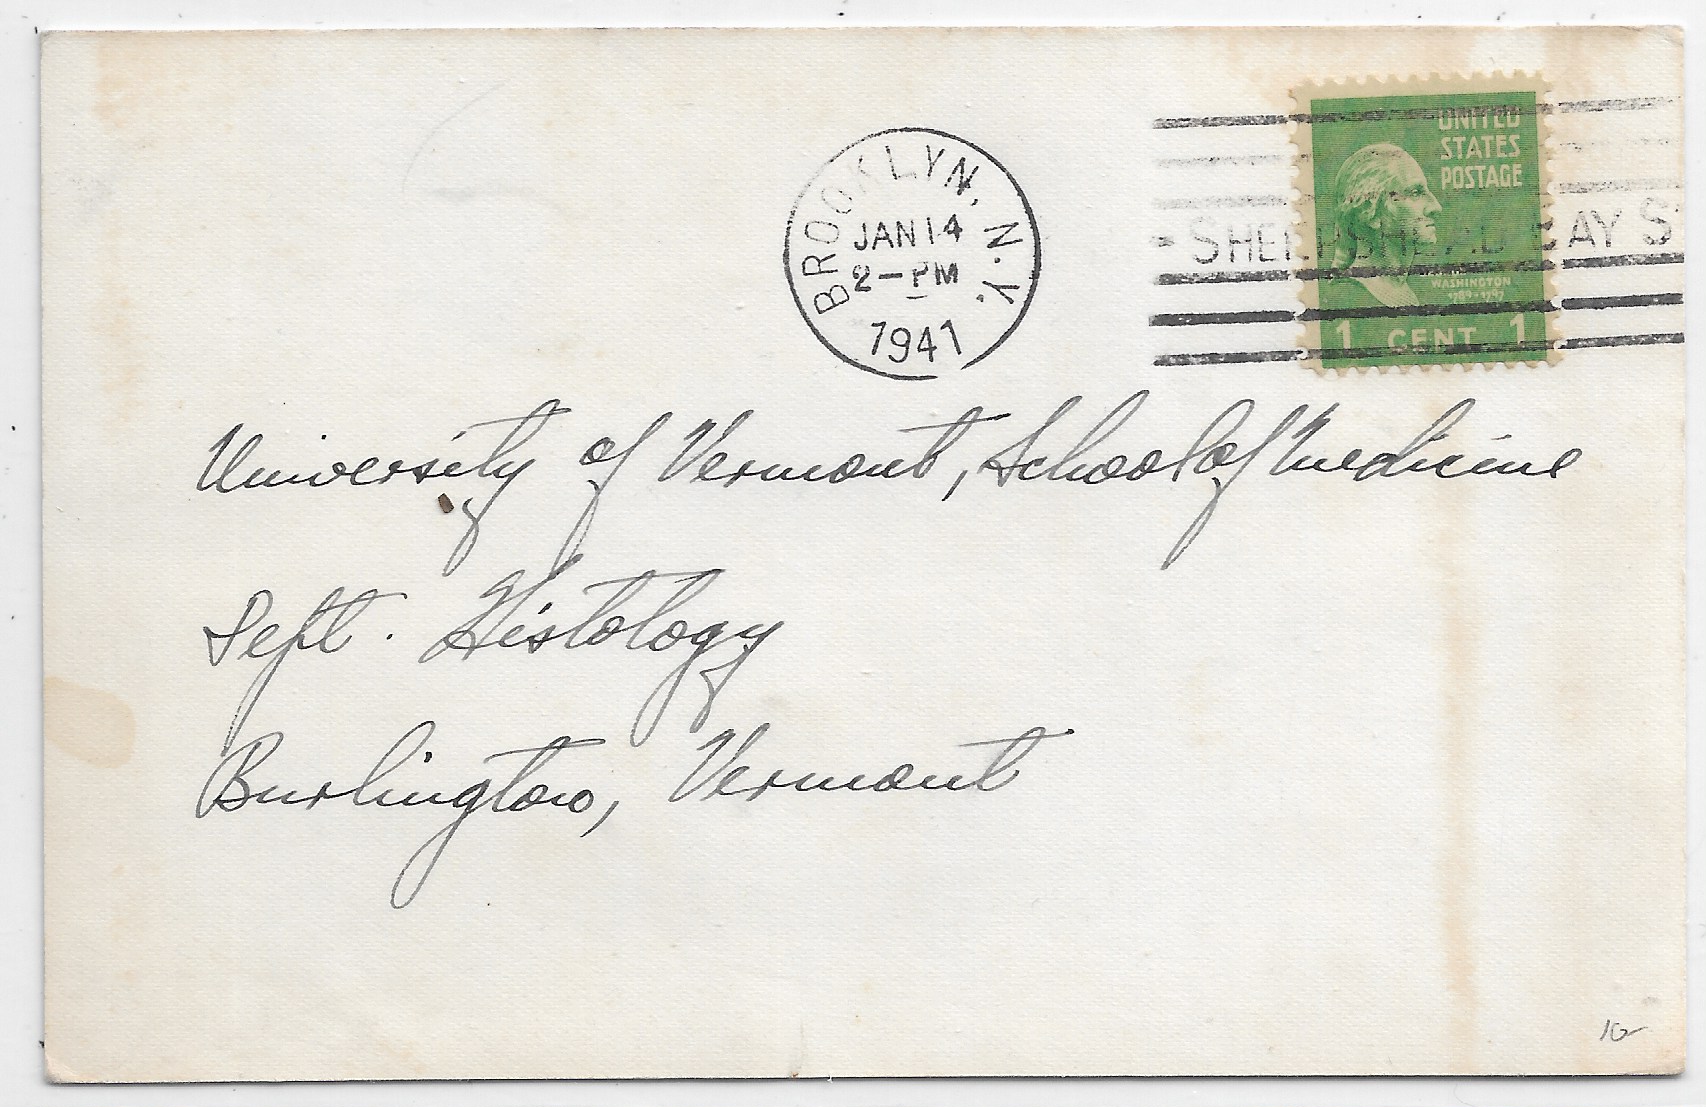 BROOKLYN, N.Y.
JAN 14
2 - PM
1941
UNITED
STATES
POSTAGE
SHEEPSHEAD BAY
WASHINGTON
1789-1797
1 CENT 1
University of Vermont, School of Medicine
Dept. Histology
Burlington, Vermont